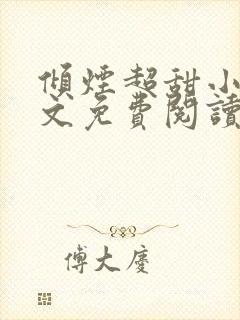 傾煙超甜小
文免費閱讀
傅大慶